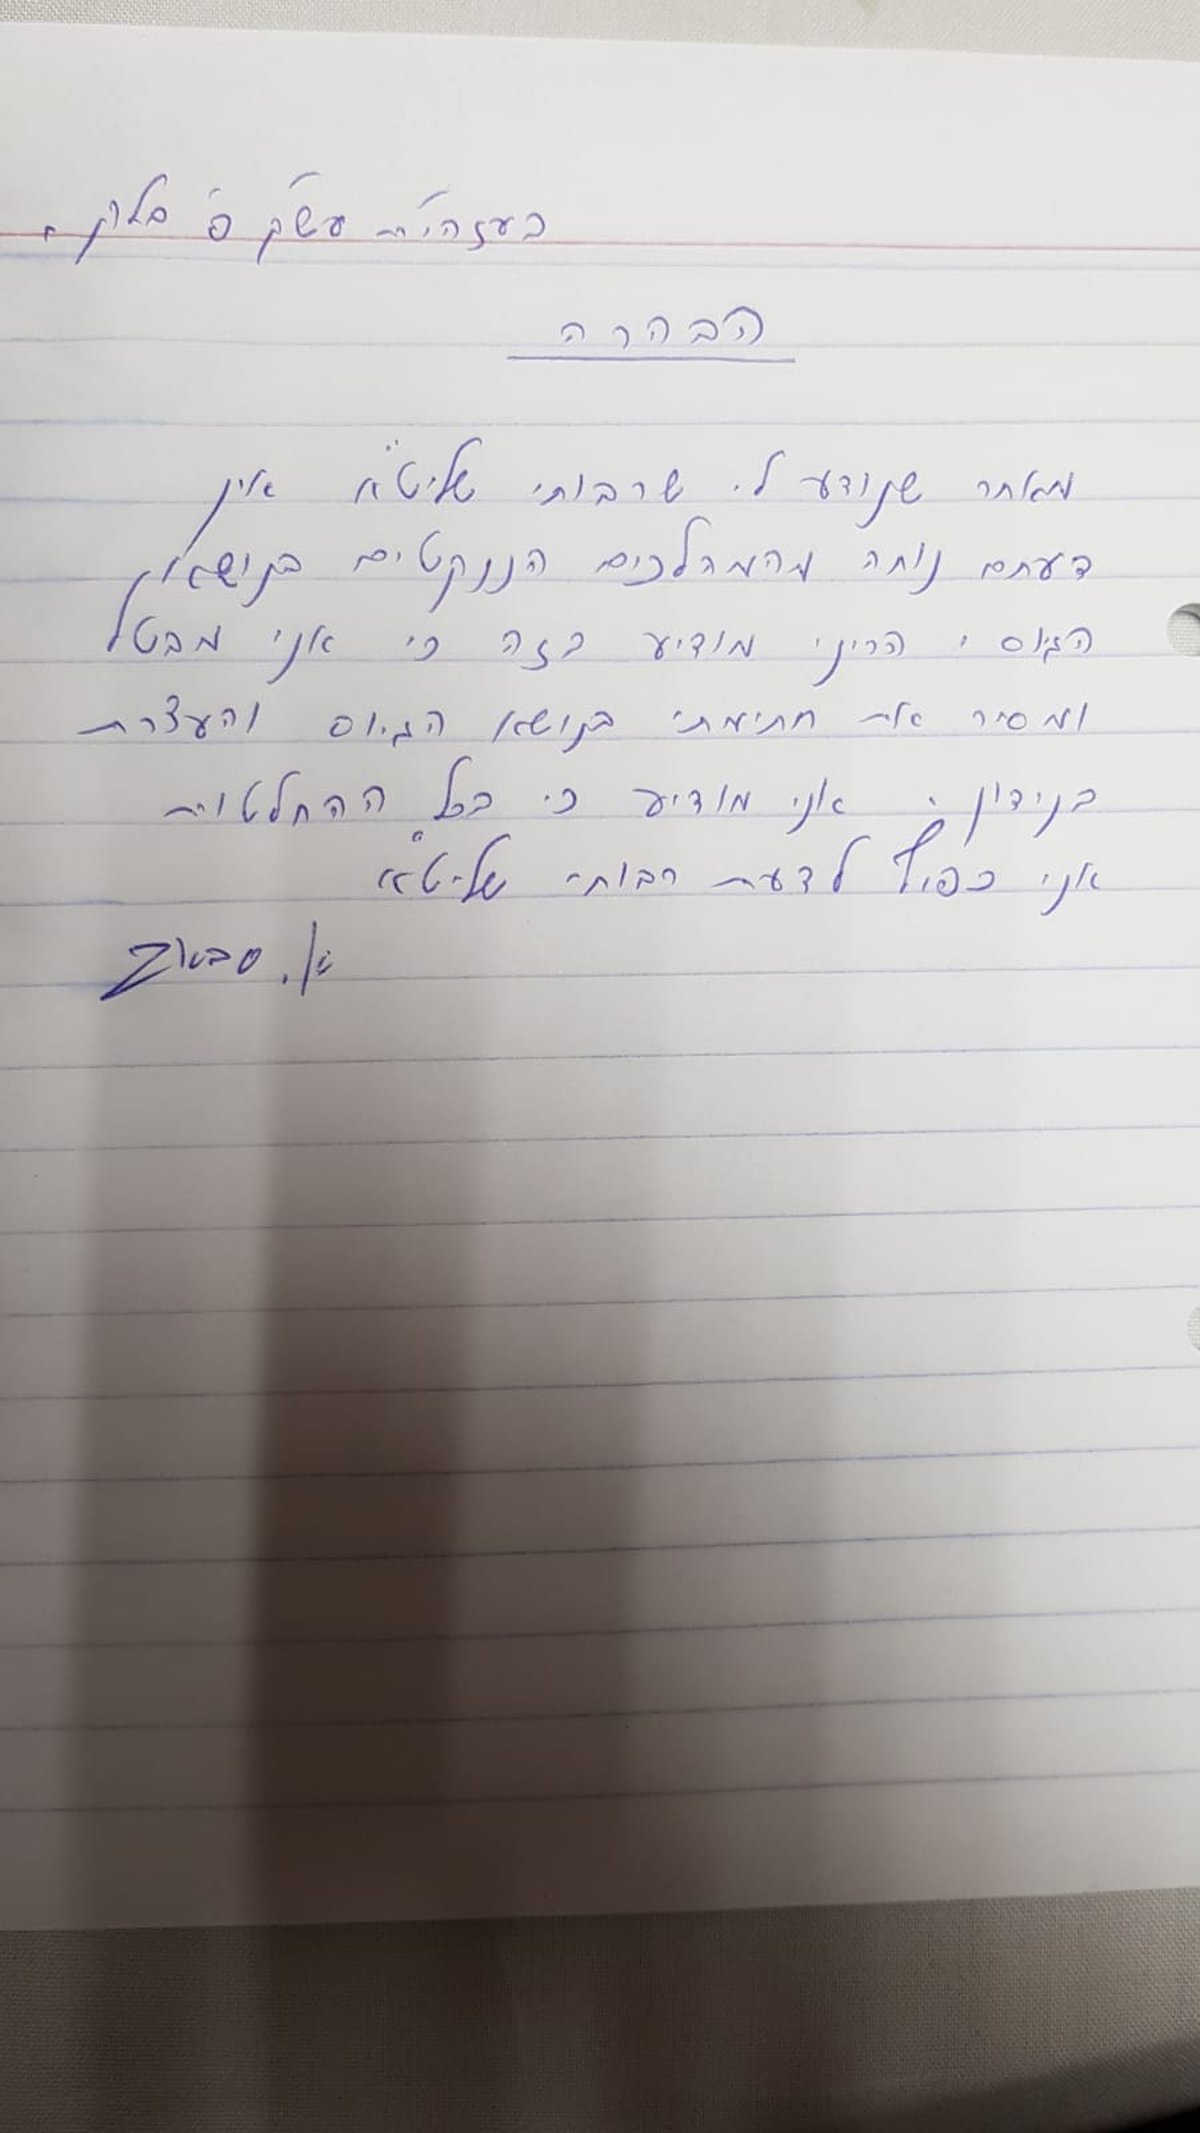 בעזהי״ת עש״ק פ׳ בלק.
הבהרה
מאחר שנודע לי שרבותי שליט״א אין
דעתם נוחה מהמהלכים הננקטים בנושאי
הגיוס, הריני מודיע בזה כי אני מבטל
ומסיר את חתימתי בנושא הגיוס והעצרת
בנידון. אני מודיע כי בכל ההחלטות
אני כפוף לדעת רבותי שליט״א
סבאג